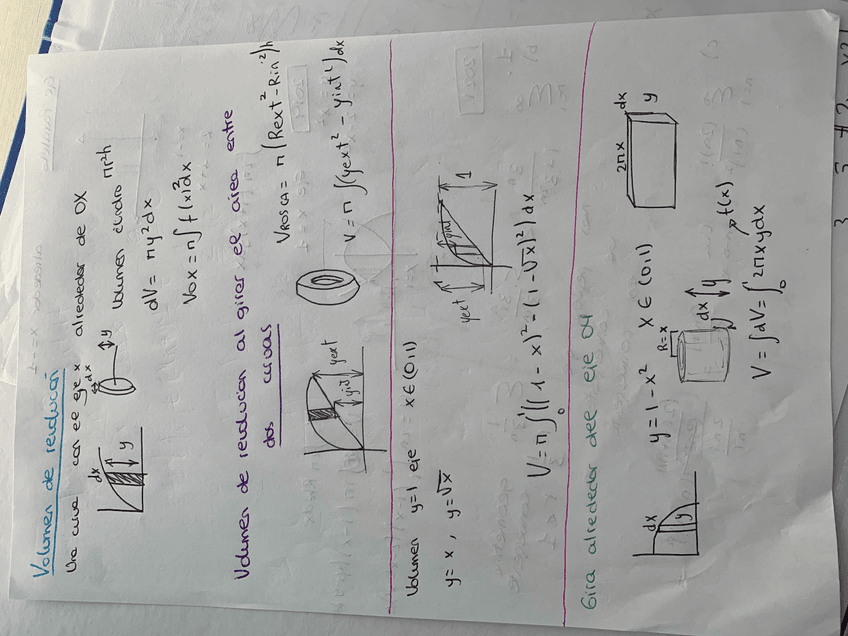 Volumen de revolucón
Una curva con el eje x alrededor de OX
dx
y
dx
y
Volumen cilindro πr²h
dV = πy²dx
Vox = π∫f(x)²dx
Volumen de revolucion al girar el area entre
dos curvas
yint
yext
VROSCA = π(Rext² - Rin²)h
V = π∫(yext² - yint²)dx
Volumen y=1, eje x∈(0,1)
y=x, y=√x
yext
yint
1
V = π∫₀¹((1-x)² - (1-√x)²)dx
Gira alrededor del eje OY
y=1-x² x∈(0,1)
dx
y
R=x
dx
y
2πx
dx
y
f(x)
V = ∫dV = ∫₀ 2πxydx